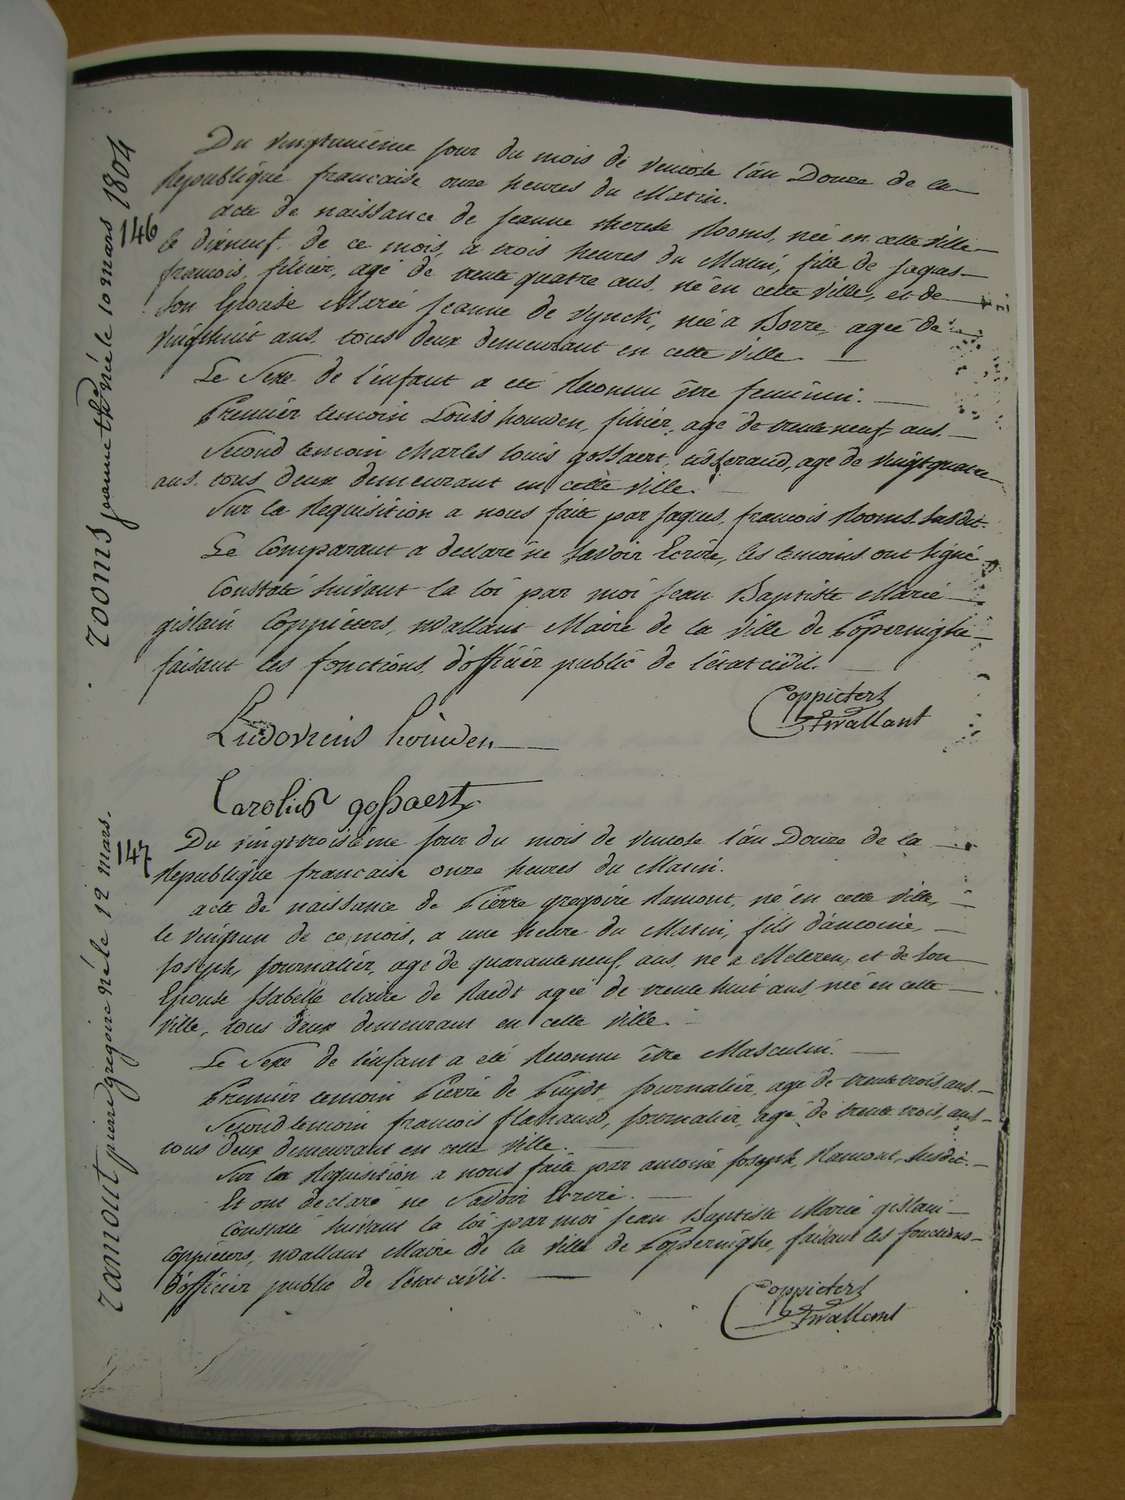 Du vingtunième jour du mois de ventose l'an Douze de la
Republique francaise onze heures du Matin.
146
acte de naissance de Jeanne therese Rooms, née en cette ville
le dixneuf de ce mois, a trois heures du Matin, fille de Jaques
francois, filtier, agé de trente quatre ans, né en cette ville, et de
son Epouse Marie Jeanne de Vynck, née a Borre, agée de
vingthuit ans tous deux demeurant en cette ville.
Le Sexe de l'enfant a eté Reconnu être feminin.
Premier temoin Louis houwen, filtier, agé de trente neuf ans.
Second temoin charles louis gossaert, tisserand, agé de vingtquatre
ans. tous deux demeurant en cette ville.
Sur la Requisition a nous faite par Jaques francois Rooms susdit.
Le Comparant a declaré ne savoir Ecrire, les temoins ont signé
Constaté suivant la loi par moi Jean Baptiste Marie
gislain Coppieters, wallant Maire de la ville de Poperinghe
faisant les fonctions d'officier public de l'état civil.
Coppieters
wallant
Ludovicus houwen
Carolus gossaert
rooms jeanne thr née le 10 mars 1804
147
Du vingttroisième jour du mois de ventose l'an Douze de la
Republique francaise onze heures du Matin.
acte de naissance de Pierre gregoire Ramont, né en cette ville,
le vingtun de ce mois, a une heure du Matin, fils d'antoine
Joseph, journalier, agé de quaranteneuf ans, né a Meteren, et de son
Epouse Isabelle claire de Raedt agée de trente huit ans, née en cette
ville, tous deux demeurant en cette ville.
Le Sexe de l'enfant a eté Reconnu être Masculin.
Premier temoin Pierre de Puydt, journalier, agé de trentetrois ans.
Second temoin francois flahaud, journalier, agé de trente trois ans
tous deux demeurant en cette ville.
Sur la Requisition a nous faite par antoine Joseph Ramont, susdit.
Et ont declaré ne Savoir Ecrire.
Constaté suivant la loi par moi Jean Baptiste Marie gislain
Coppieters, wallant Maire de la ville de Poperinghe, faisant les fonctions
d'officier public de l'état civil.
Coppieters
wallant
ramout pierre gregoire né le 12 mars.